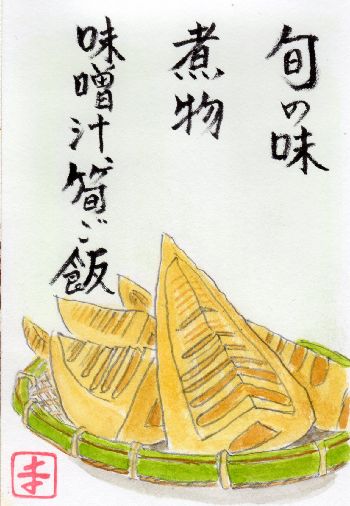 旬の味
煮物
味噌汁、筍ご飯